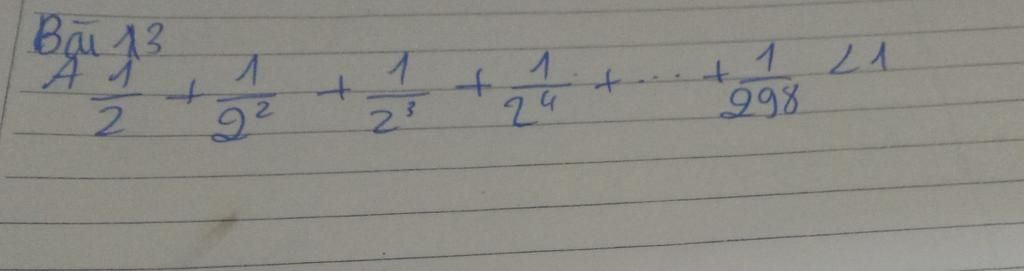 Bài 13
A 1/2 + 1/2² + 1/2³ + 1/2⁴ + ... + 1/298 < 1